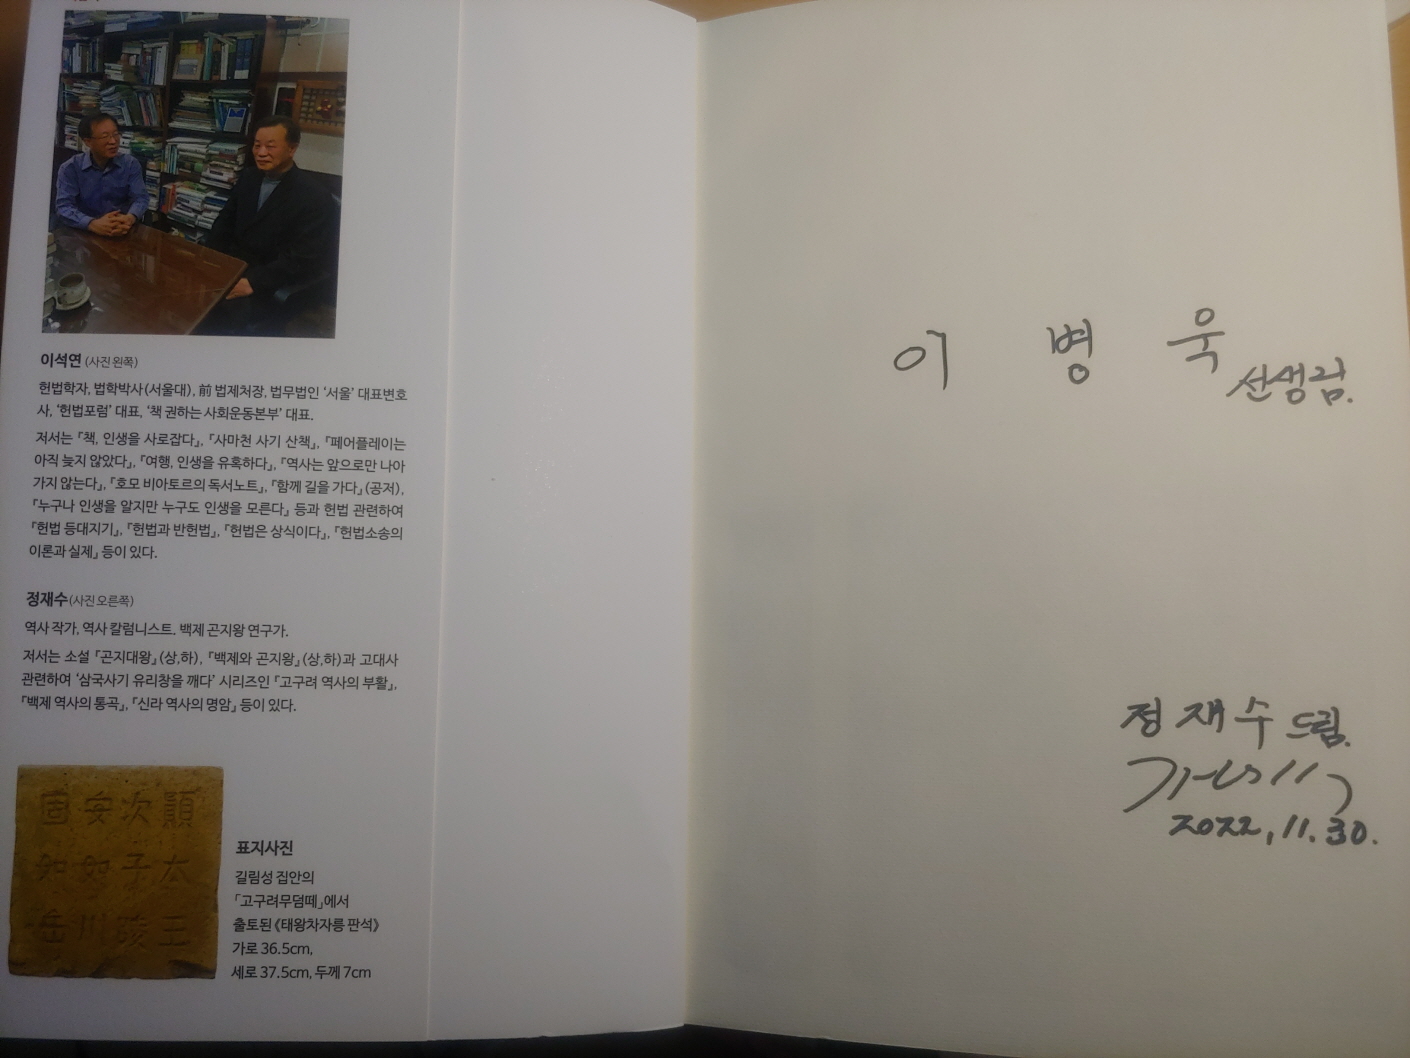 이석연 (사진 왼쪽)
헌법학자, 법학박사(서울대), 前 법제처장, 법무법인 ‘서울’ 대표변호
사, ‘헌법포럼’ 대표, ‘책 권하는 사회운동본부’ 대표.
저서는 『책, 인생을 사로잡다』, 『사마천 사기 산책』, 『페어플레이는
아직 늦지 않았다』, 『여행, 인생을 유혹하다』, 『역사는 앞으로만 나아
가지 않는다』, 『호모 비아토르의 독서노트』, 『함께 길을 가다』(공저),
『누구나 인생을 알지만 누구도 인생을 모른다』 등과 헌법 관련하여
『헌법 등대지기』, 『헌법과 반헌법』, 『헌법은 상식이다』, 『헌법소송의
이론과 실제』 등이 있다.
정재수 (사진 오른쪽)
역사 작가, 역사 칼럼니스트. 백제 곤지왕 연구가.
저서는 소설 『곤지대왕』(상,하), 『백제와 곤지왕』(상,하)과 고대사
관련하여 ‘삼국사기 유리창을 깨다’ 시리즈인 『고구려 역사의 부활』,
『백제 역사의 통곡』, 『신라 역사의 명암』 등이 있다.
固安次願
如如子太
岳川陵王
표지사진
길림성 집안의
「고구려무덤떼」에서
출토된 《태왕차자릉 판석》
가로 36.5cm,
세로 37.5cm, 두께 7cm
이 병 욱
선생님.
정재수 드림.
2022, 11. 30.